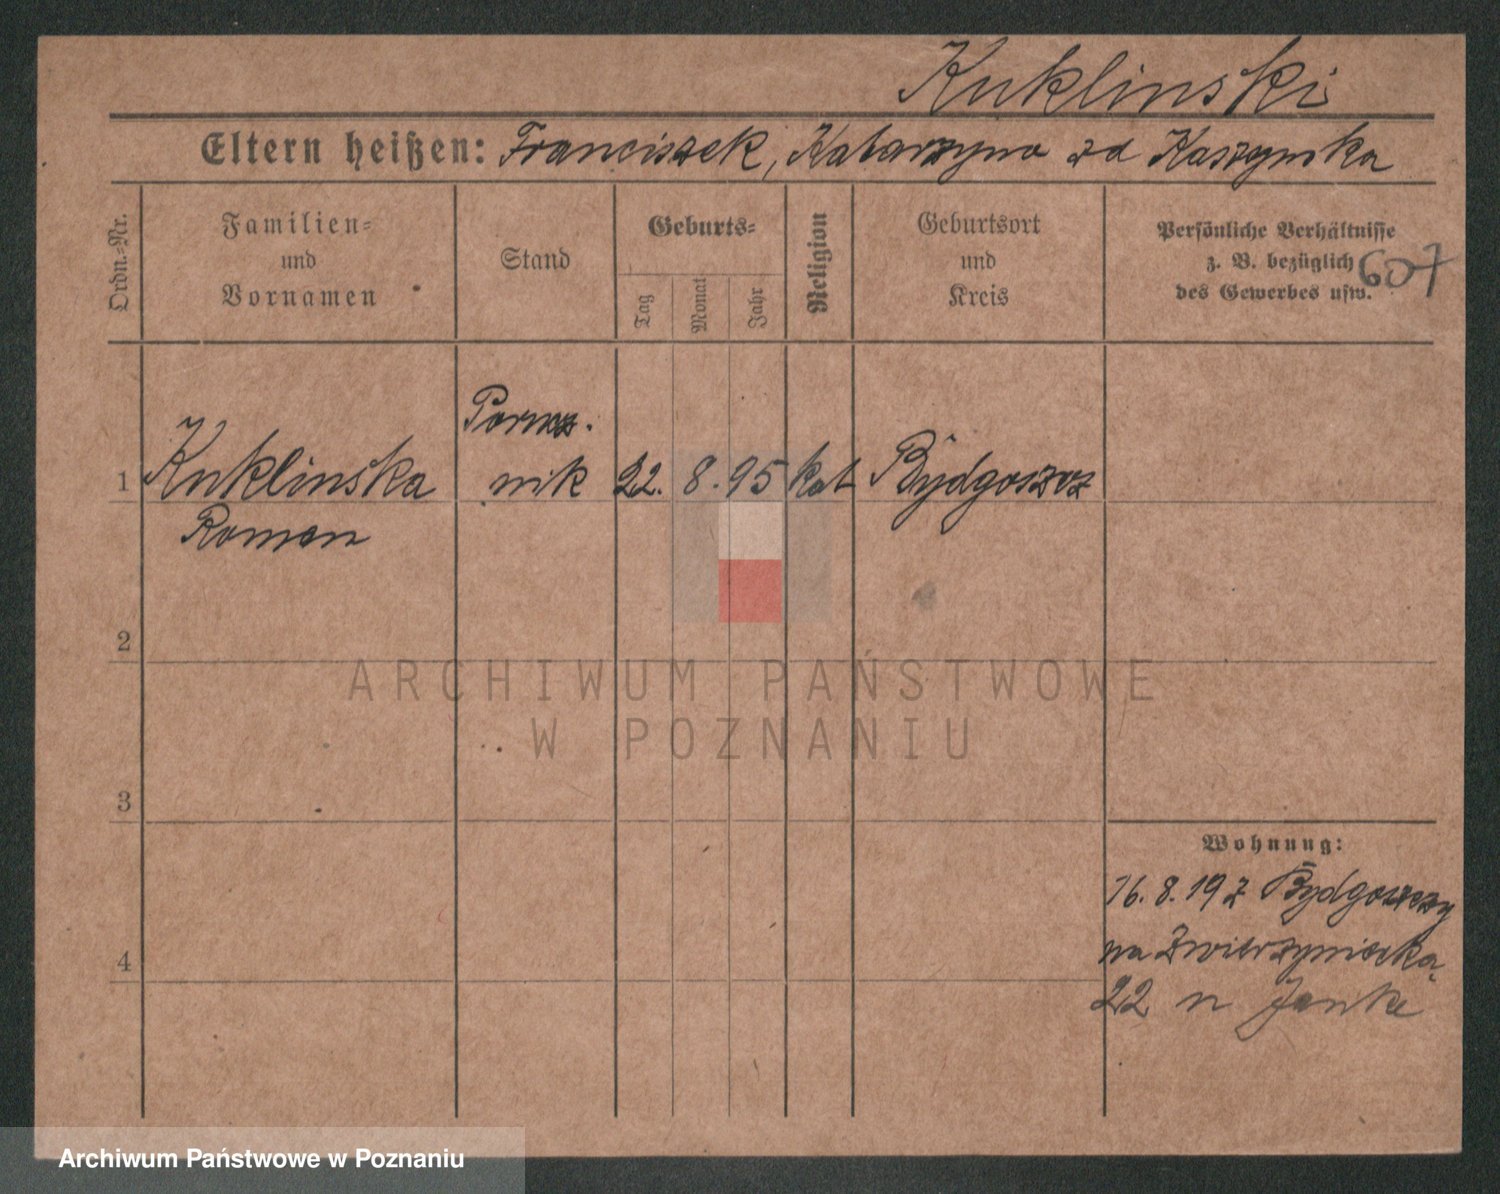 Kuklinski
Eltern heißen: Franciszek, Katarzyna zd Kaszynska
Ordn.-Nr.
Familien-
und
Vornamen
Stand
Geburts-
Tag
Monat
Jahr
Religion
Geburtsort
und
Kreis
Persönliche Verhältnisse
z. B. bezüglich
des Gewerbes usw.
607
1
Kuklinska
Roman
nik
22. 8. 95
kat
Bydgoszcz
2
3
4
Wohnung:
16. 8. 19 z Bydgoszczy
na Zwierzyniecka
22 n Janke
ARCHIWUM PAŃSTWOWE
W POZNANIU
Archiwum Państwowe w Poznaniu